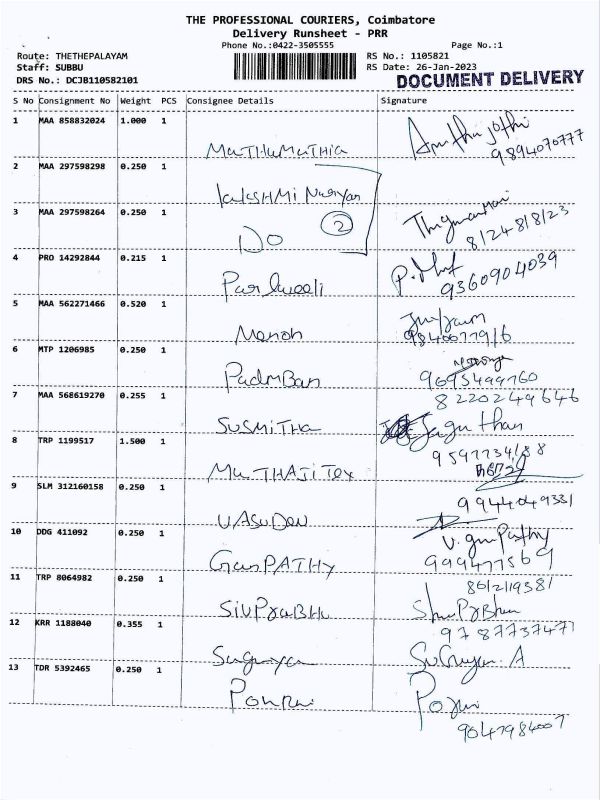 THE PROFESSIONAL COURIERS, Coimbatore
Delivery Runsheet - PRR
Phone No.:0422-3505555
Page No.:1
Route: THETHEPALAYAM
RS No.: 1105821
Staff: SUBBU
RS Date: 26-Jan-2023
DRS No.: DCJB110582101
DOCUMENT DELIVERY
S No Consignment No Weight PCS Consignee Details Signature
1 MAA 858832024 1.000 1
MuTHuMuTHia
9894070777
2 MAA 297598298 0.250 1
LakSHMi Narayan
3 MAA 297598264 0.250 1
Do 2
8124818123
4 PRO 14292844 0.215 1
9360904039
5 MAA 562271466 0.520 1
Manoh
6 MTP 1206985 0.250 1
PadmBan
7 MAA 568619270 0.255 1
8220249646
SuSMiTHa
8 TRP 1199517 1.500 1
MuTHAJi Tex
9 SLM 312160158 0.250 1
VASuDev
10 DDG 411092 0.250 1
GanPATHy
11 TRP 8064982 0.250 1
SivPraBHu
12 KRR 1188040 0.355 1
9787737471
Suguyan
SuGuyan. A
13 TDR 5392465 0.250 1
9047984007